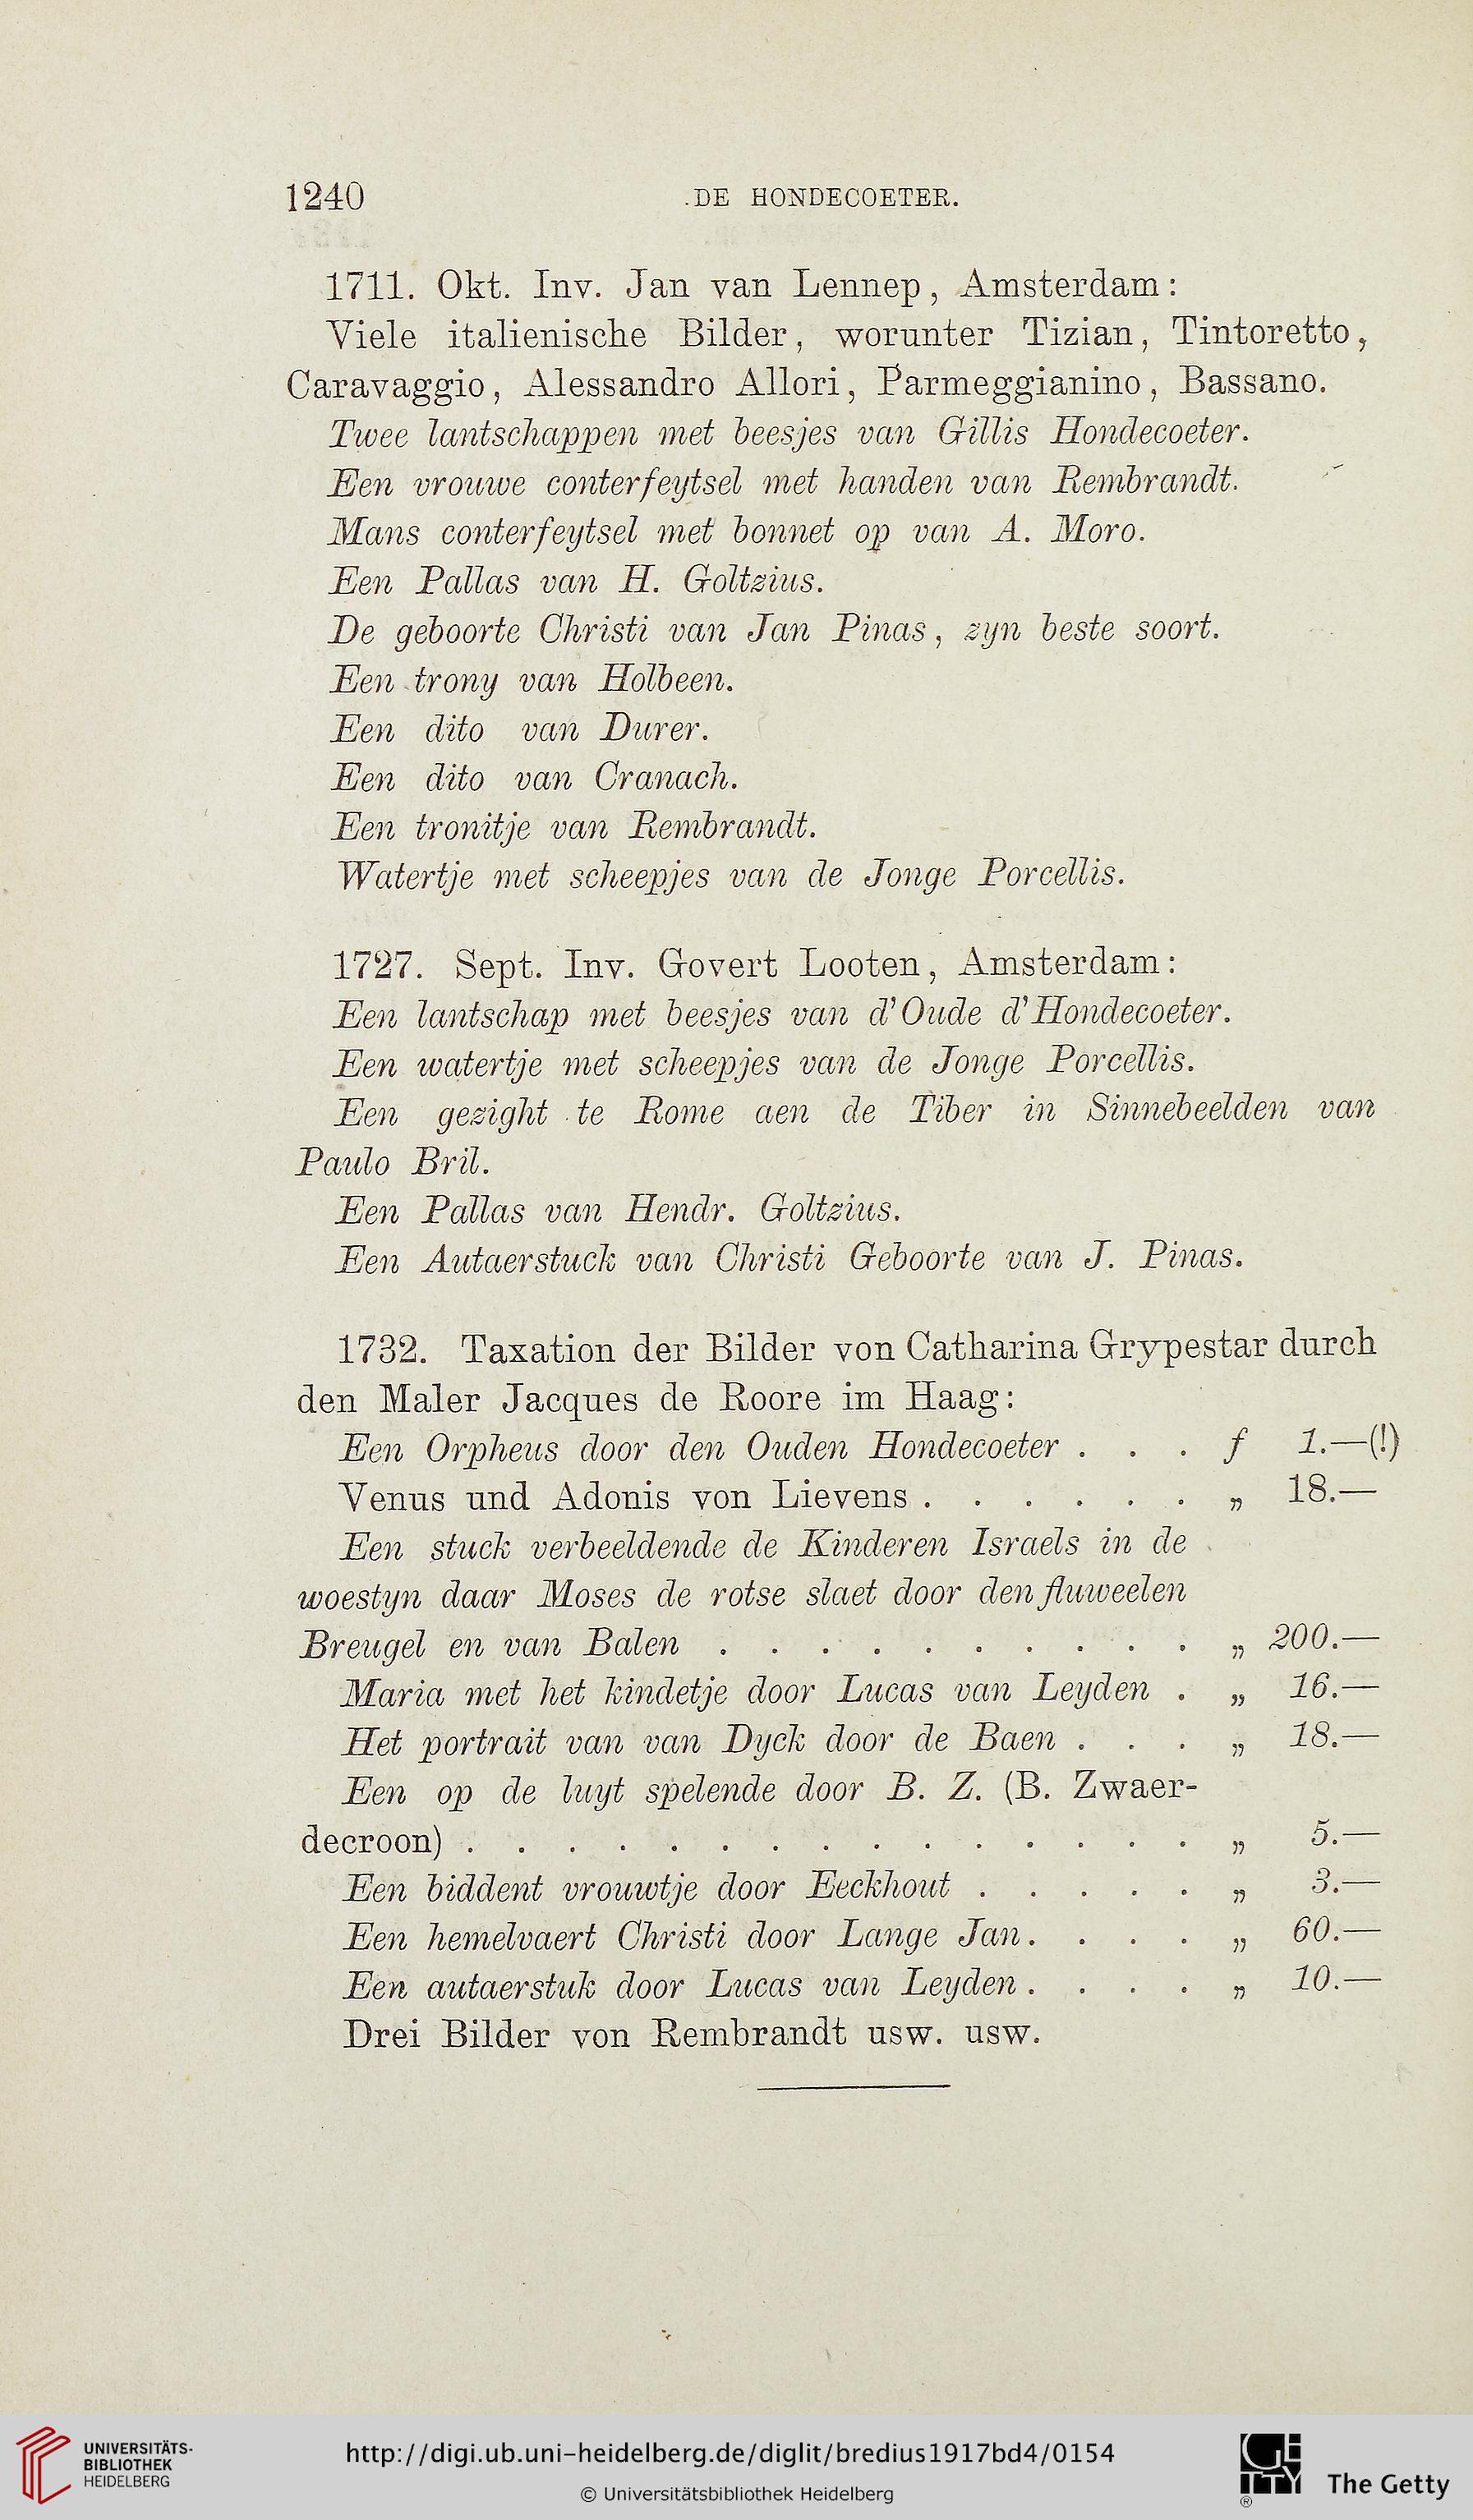 1240 DE HONDECOETER.
1711. Okt. Inv. Jan van Lennep, Amsterdam:
Viele italienische Bilder, worunter Tizian, Tintoretto,
Caravaggio, Alessandro Allori, Parmeggianino, Bassano.
Twee lantschappen met beesjes van Gillis Hondecoeter.
Een vrouwe conterfeytsel met handen van Rembrandt.
Mans conterfeytsel met bonnet op van A. Moro.
Een Pallas van H. Goltzius.
De geboorte Christi van Jan Pinas, zyn beste soort.
Een trony van Holbeen.
Een dito van Durer.
Een dito van Cranach.
Een tronitje van Rembrandt.
Watertje met scheepjes van de Jonge Porcellis.
1727. Sept. Inv. Govert Looten, Amsterdam:
Een lantschap met beesjes van d'Oude d'Hondecoeter.
Een watertje met scheepjes van de Jonge Porcellis.
Een gezight te Rome aen de Tiber in Sinnebeelden van
Paulo Bril.
Een Pallas van Hendr. Goltzius.
Een Autaerstuck van Christi Geboorte van J. Pinas.
1732. Taxation der Bilder von Catharina Grypestar durch
den Maler Jacques de Roore im Haag:
Een Orpheus door den Ouden Hondecoeter . . . f 1.—(!)
Venus und Adonis von Lievens . . . . . . „ 18.—
Een stuck verbeeldende de Kinderen Israels in de
woestyn daar Moses de rotse slaet door den fluweelen
Breugel en van Balen . . . . . . . . . . „ 200.—
Maria met het kindetje door Lucas van Leyden . „ 16.—
Het portrait van van Dyck door de Baen . . . „ 18.—
Een op de luyt spelende door B. Z. (B. Zwaer-
decroon) . . . . . . . . . . . . . . . „ 5.—
Een biddent vrouwtje door Eeckhout . . . . . „ 3.—
Een hemelvaert Christi door Lange Jan. . . . . „ 60.—
Een autaerstuk door Lucas van Leyden . . . . „ 10.—
Drei Bilder von Rembrandt usw. usw.
UNIVERSITÄTS-
BIBLIOTHEK
HEIDELBERG
http://digi.ub.uni-heidelberg.de/diglit/bredius1917bd4/0154
© Universitätsbibliothek Heidelberg
GETTY
®
The Getty